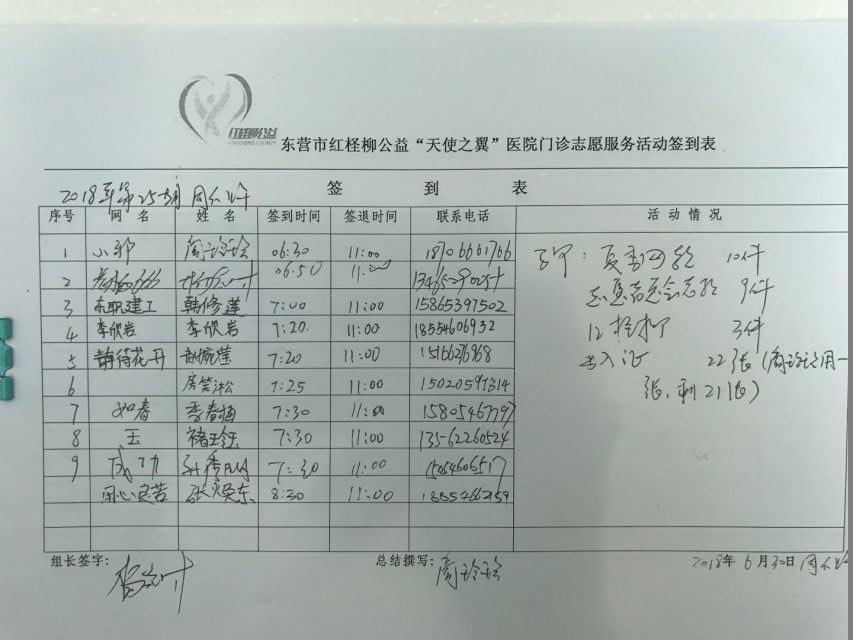 红柽柳公益
东营市红柽柳公益“天使之翼”医院门诊志愿服务活动签到表
签 到 表
2018年第25期 周六上午
序号 网 名 姓 名 签到时间 签退时间 联系电话 活 动 情 况
1 小邪 周玲玲 06:30 11:00 18706661766
2 06:50 11:00
3 东职建工 韩修莲 7:00 11:00 15865397502
4 李欣岩 李欣岩 7:20 11:00 18554606932
5 静待花开 赵婉莹 7:20 11:00 15166276968
6 房笑淞 7:25 11:00 15020591314
7 如春 李春梅 7:30 11:00 15805467797
8 玉 褚玉钰 7:30 11:00 13562260524
9 成功 7:30 11:00 15054606517
用心良苦 张焕东 8:30 11:00
马甲：夏季网 10件
9件
3件
出入证 22张（周玲玲用一
张，剩21张）
组长签字：
总结撰写：周玲玲
2018年6月30日 周六上午